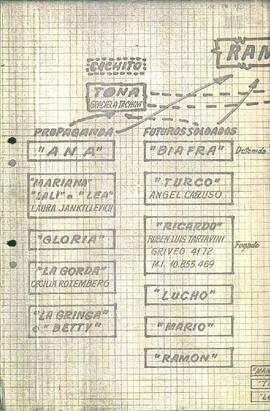 COCHITO
RAM
TONA
GRACIELA TACHONI
PROPAGANDA
FUTUROS SOLDADOS
"ANA"
"BIAFRA"
Detenida
"MARIANA"
"LALI" o "LEA"
LAURA JANKILEVICH
"TURCO"
ANGEL CARUSO
"GLORIA"
"RICARDO"
RUBEN LUIS TARTAVINI
GRIVEO 4172
M.I. 10.855.469
Fugado
"LA GORDA"
CECILIA ROTEMBERG
"LUCHO"
"LA GRINGA"
o "BETTY"
"MARIO"
"RAMON"